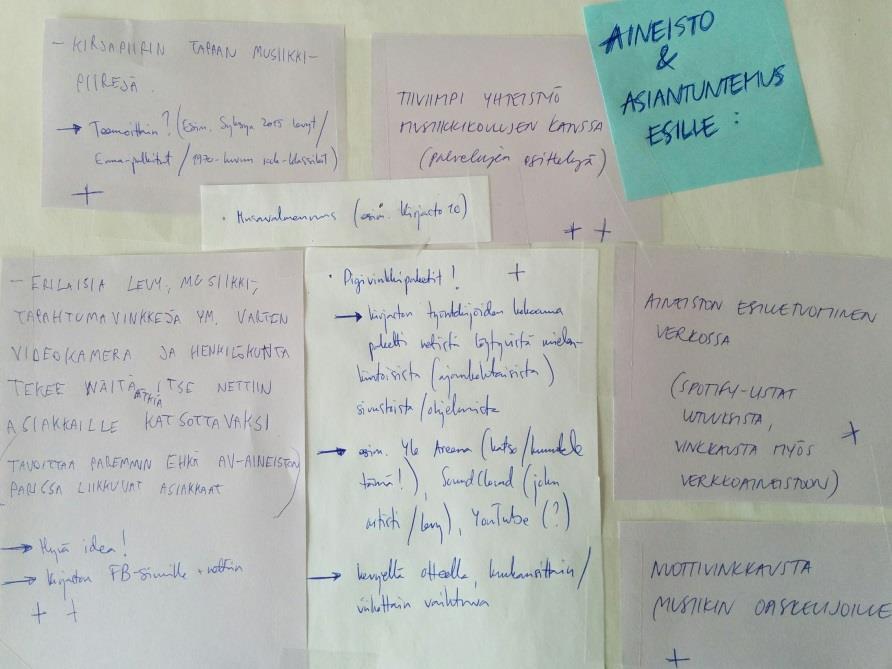 - KIRJAPIIRIN TAPAAN MUSIIKKI-
PIIREJÄ.
→ Teemoittain? (Esim. Syksyn 2015 levyt/
Emma-palkitut / 1970-luvun rock-klassikot)
+
TIIVIIMPI YHTEISTYÖ
MUSIIKKIKOULUJEN KANSSA
(palvelujen esittelyä)
+ +
AINEISTO
&
ASIANTUNTEMUS
ESILLE:
• Musavalmennus (esim. Kirjasto 10)
- ERILAISIA LEVY-, MUSIIKKI-,
TAPAHTUMAVINKKEJÄ YM. VARTEN
VIDEOKAMERA JA HENKILÖKUNTA
TEKEE NÄITÄ ITSE NETTIIN
ASIAKKAILLE KATSOTTAVAKSI
TAVOITTAA PAREMMIN EHKÄ AV-AINEISTON
PARISSA LIIKKUVAT ASIAKKAAT)
→ Hyvä idea!
→ Kirjaston FB-sivuille + nettiin
+ +
• Digivinkkipaketit! +
→ kirjaston työntekijöiden kokoama
paketti netistä löytyvistä mielen-
kiintoisista (ajankohtaisista)
sivustoista/ohjelmista
→ esim. Yle Areena (katso/kuuntele
tämä!), SoundCloud (joku
artisti/levy), YouTube (?)
→ kevyellä otteella, kuukausittain/
viikottain vaihtuva
AINEISTON ESILLETUOMINEN
VERKOSSA
(SPOTIFY-LISTAT
UUTUUKSISTA,
VINKKAUSTA MYÖS
VERKKOAINEISTOON)
+
NUOTTIVINKKAUSTA
MUSIIKIN OPISKELIJOILLE
+